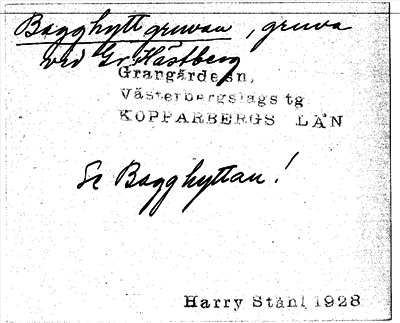 Bagghyttgruvan, gruva
ved Gr. Hästberg
Grangärde sn,
Västerbergslags tg
KOPPARBERGS LÄN
Se Bagghyttan!
Harry Ståhl 1928